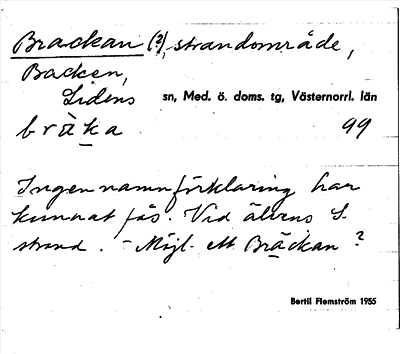 Brackan (?), strandområde,
Backen,
Lidens sn, Med. ö. doms. tg, Västernorrl. län
bràka 99
Ingen namnförklaring har
kunnat fås. Vid älvens S.
strand. - Möjl. ett Bräckan?
Bertil Flemström 1955